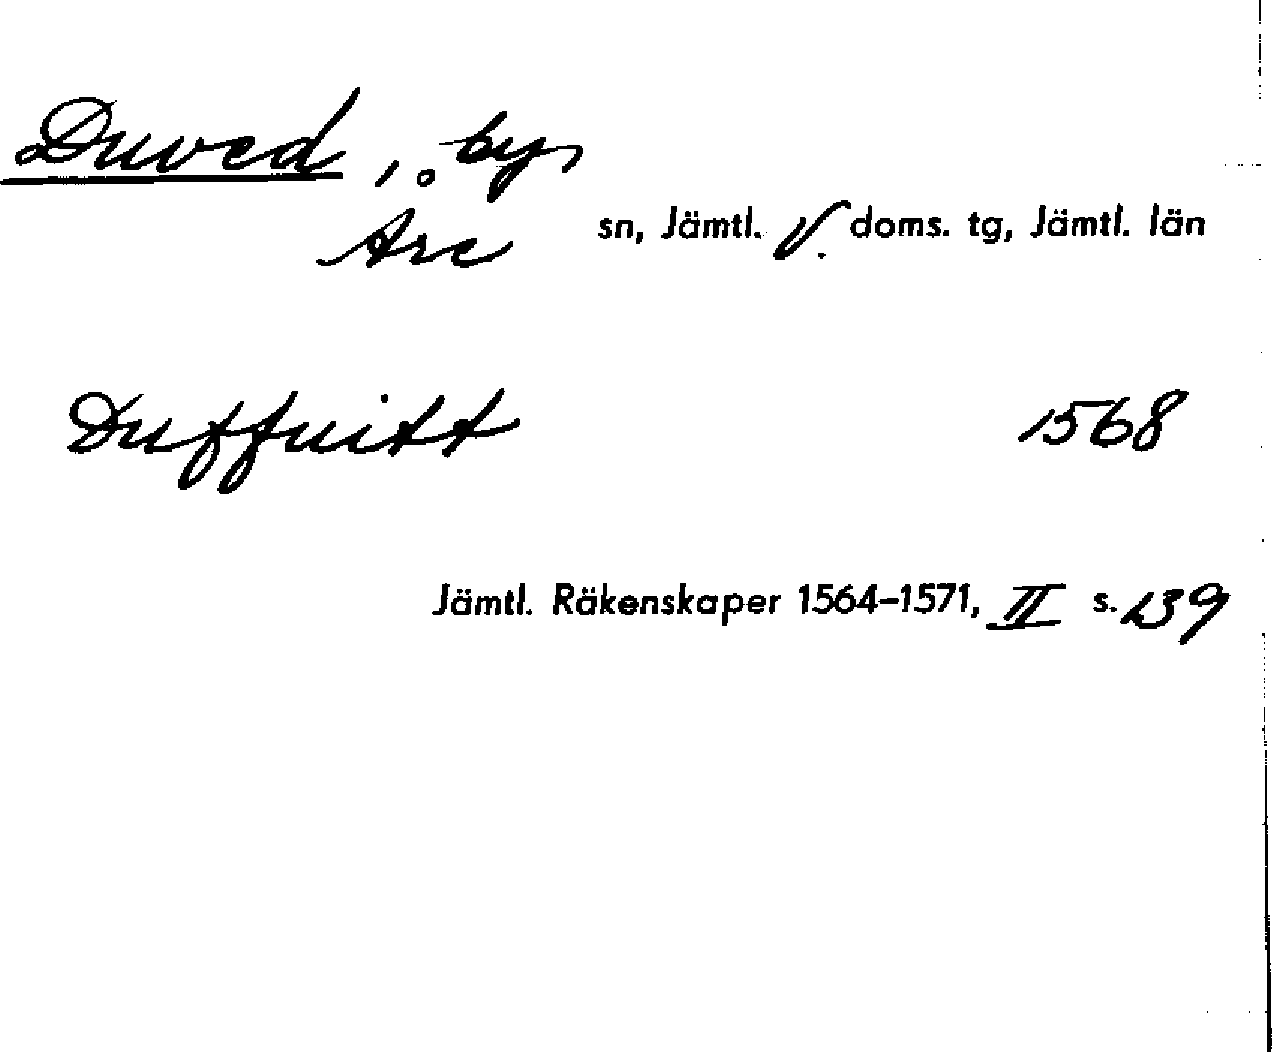 Duved, by,
Åre sn, Jämtl. V. doms. tg, Jämtl. län
Duffuitt 1568
Jämtl. Räkenskaper 1564-1571, II s. 139